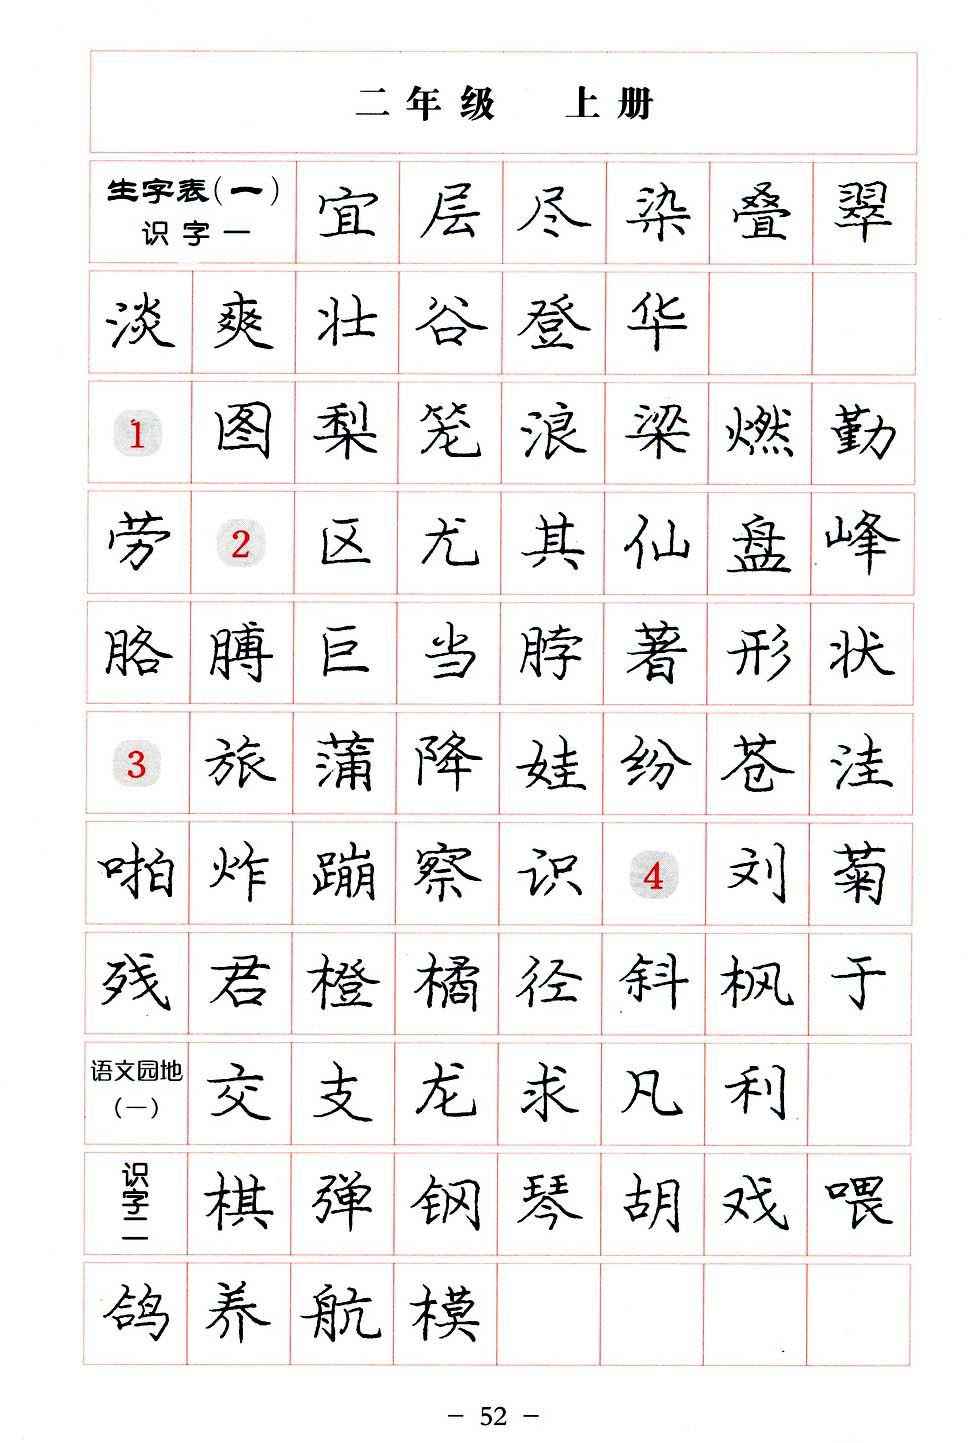 二年级 上册
生字表(一) 识字一 宜 层 尽 染 叠 翠
淡 爽 壮 谷 登 华
1 图 梨 笼 浪 梁 燃 勤
劳 2 区 尤 其 仙 盘 峰
胳 膊 巨 当 脖 著 形 状
3 旅 蒲 降 娃 纷 苍 洼
啪 炸 蹦 察 识 4 刘 菊
残 君 橙 橘 径 斜 枫 于
语文园地(一) 交 支 龙 求 凡 利
识字二 棋 弹 钢 琴 胡 戏 喂
鸽 养 航 模
- 52 -